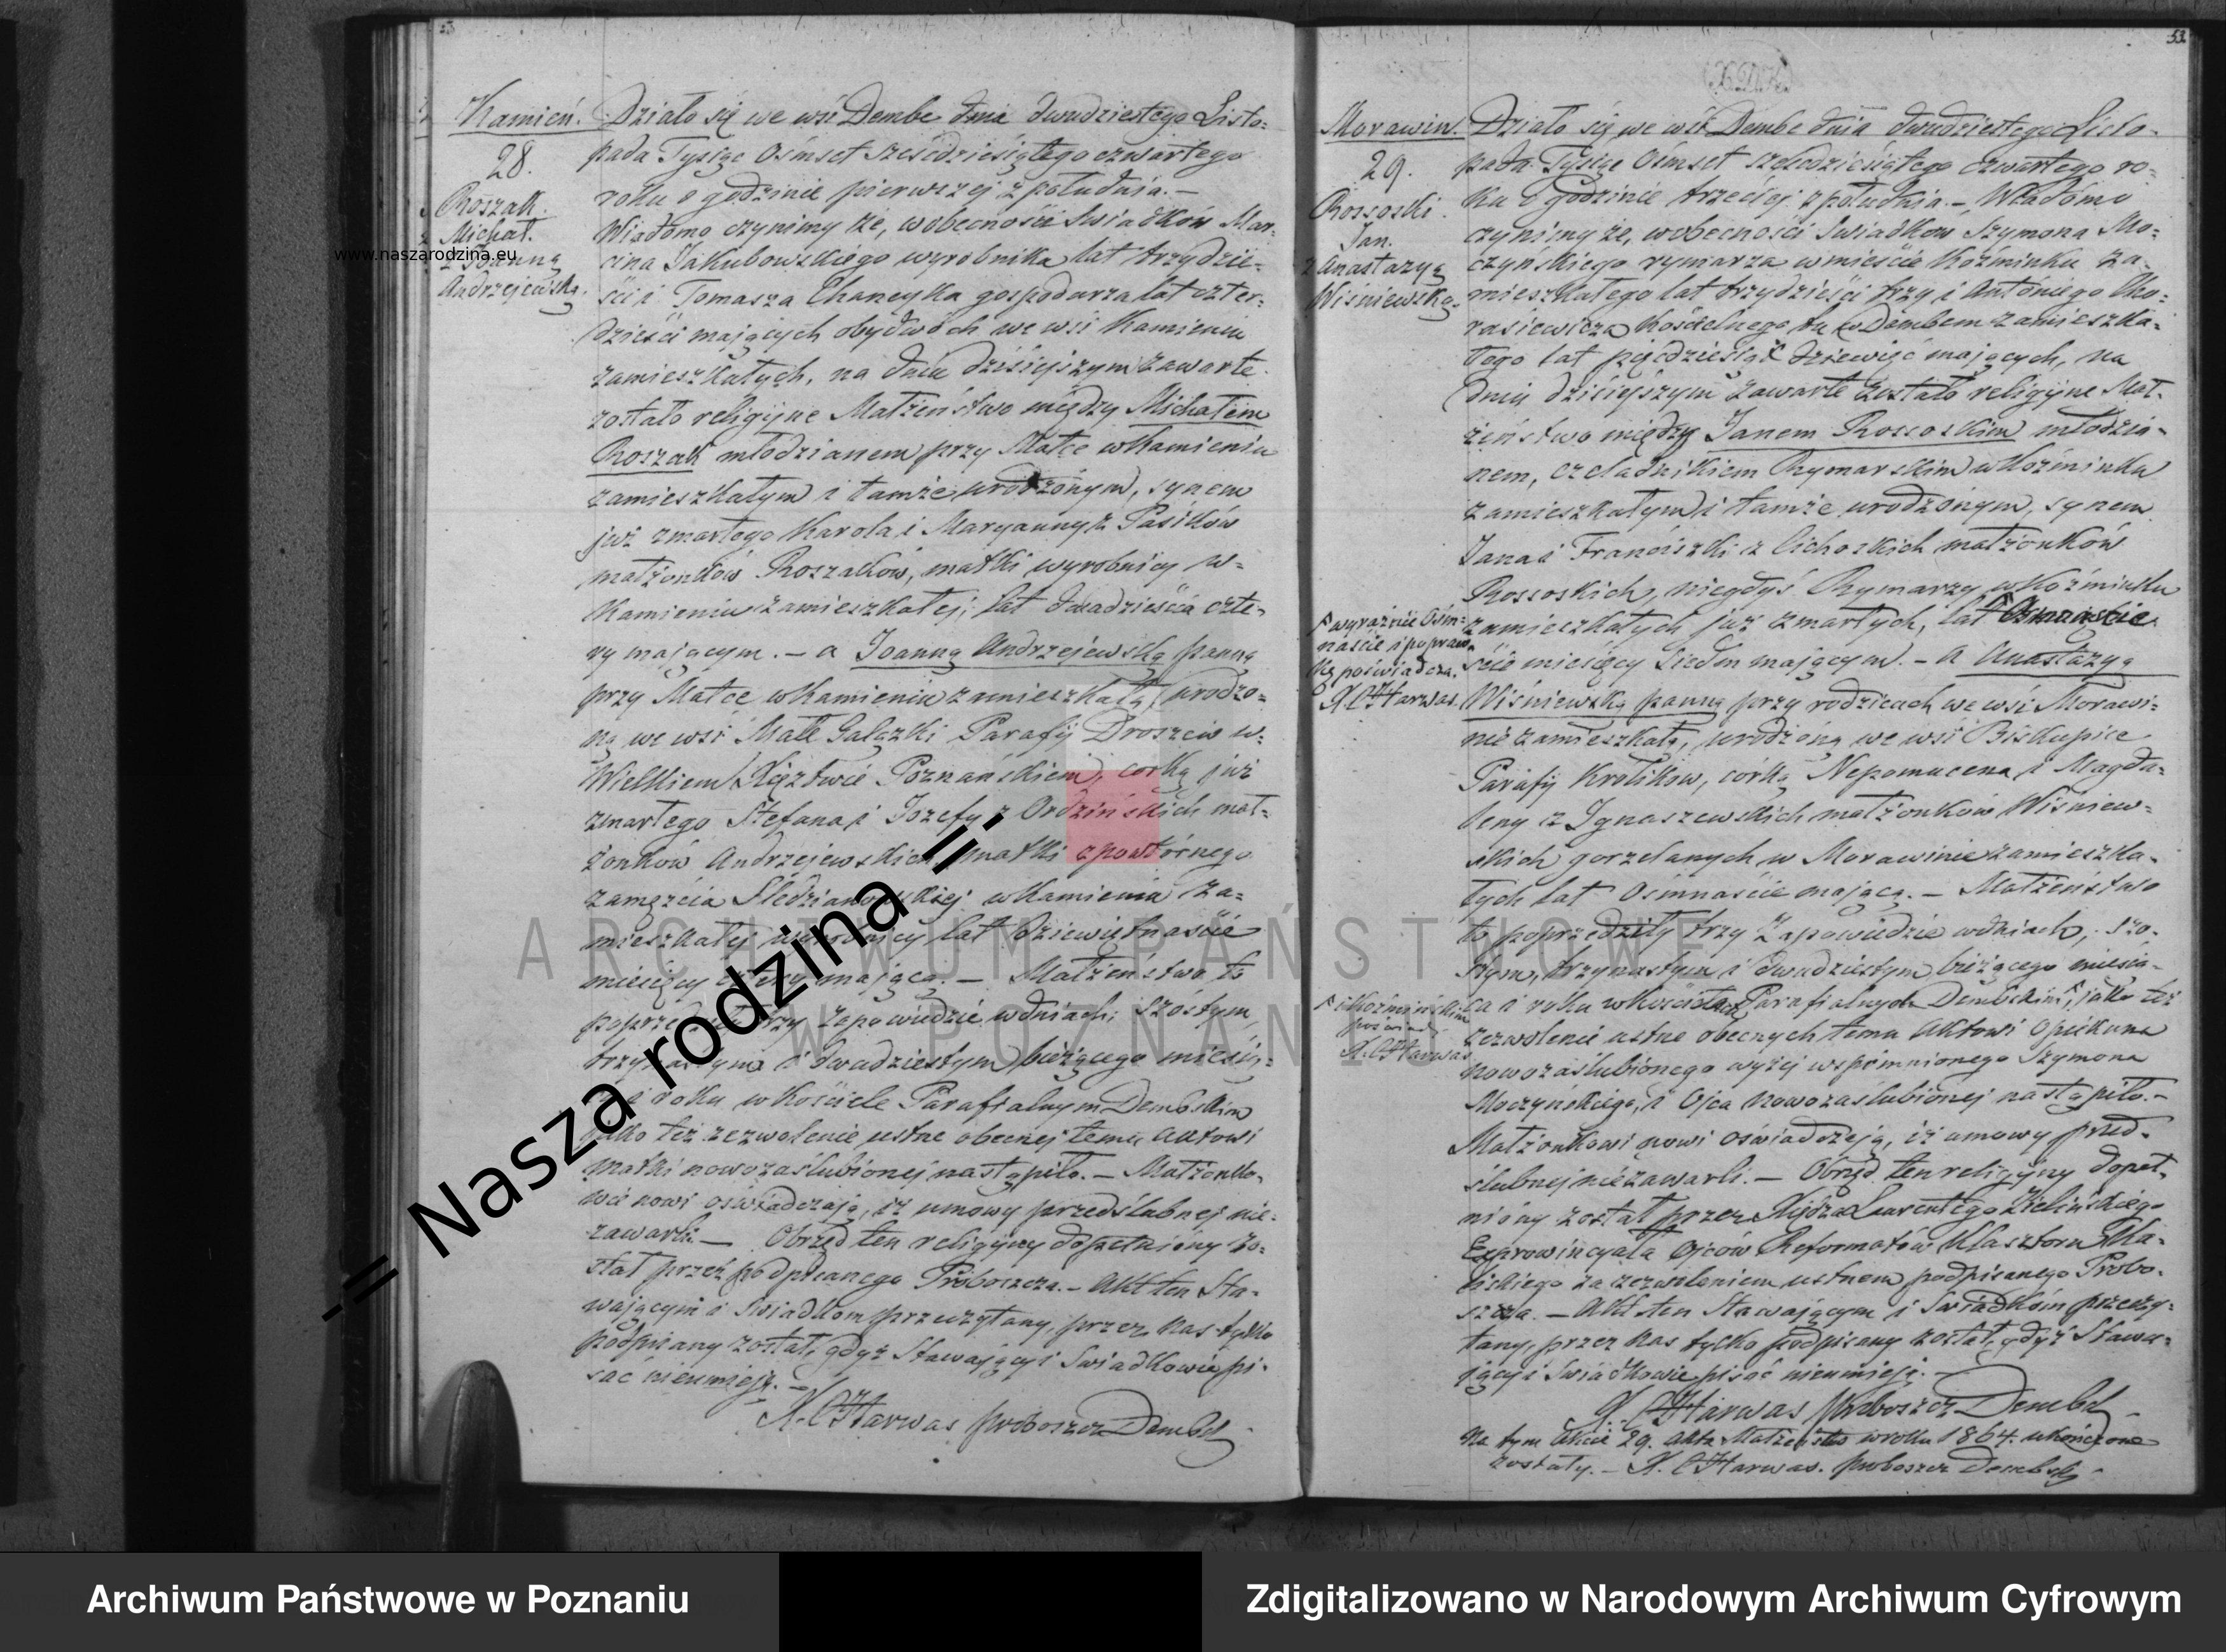 53
Kamień.
28.
Roszak
Michał.
z Joanną
Andrzejewską.
Działo się we wsi Dembe dnia dwudziestego Listo=
pada Tysiąc Ośmset sześćdziesiątego czwartego
roku o godzinie pierwszej z południa. –
Wiadomo czynimy że, w obecności Świadków Mar=
cina Jakubowskiego wyrobnika lat trzydzie=
ści i Tomasza Chaneyka gospodarza lat czter=
dzieści mających obydwóch we wsi Kamieniu
zamieszkałych, na dniu dzisiejszym zawarte
zostało religijne Małżeństwo między Michałem
Roszak młodzianem przy Matce w Kamieniu
zamieszkałym i tamże urodzonym, synem
już zmarłego Karola i Maryanny z Pasików
małżonków Roszaków, matki wyrobnicy w=
Kamieniu zamieszkałej; lat dwadzieścia czte=
ry mającym. – a Joanną Andrzejewską panną
przy Matce w Kamieniu zamieszkałą, urodzo=
ną we wsi Małe Gałązki Parafij Droszew w=
Wielkiem Księztwie Poznańskiem, córką już
zmarłego Stefana i Jozefy z Ordzińskich mał=
żonków Andrzejewskich, matki z powtórnego
zamęzcia Śledzianowskiej w Kamieniu za=
mieszkałej wyrobnicy lat dziewiętnaście
miesięcy cztery mającą. – Małżeństwo to
poprzedziły trzy Zapowiedzie w dniach; szóstym,
trzynastym i dwudziestym bieżącego miesią=
ca i roku w Kościele Parafialnym Dembskim
jako też zezwolenie ustne obecnej temu aktowi
matki nowozaślubionej nastąpiło. – Małżonko=
wie nowi oświadczają, iż umowy przedślubnej nie=
zawarli. – Obrzęd ten religijny dopełniony zo=
stał przez podpisanego Proboszcza. – Akt ten Sta=
wającym i Świadkom przeczytany, przez nas tylko
podpisany został, gdyż Stawający i Świadkowie pi=
sać nieumieją. –
X. C Harwas proboszcz Dembski
53
Morawin.
29.
Rossoski
Jan.
z Anastazyą
Wiśniewską.
Działo się we wsi Dembe dnia dwudziestego Listo=
pada Tysiąc Ośmset sześćdziesiątego czwartego ro=
ku o godzinie trzeciej z południa. – Wiadomo
czynimy że, w obecności Świadków Szymona Mo=
czynskiego rymarza w mieście Koźminku za=
mieszkałego lat trzydzieści trzy i Antoniego Cho=
rasiewicza Kościelnego tu w Dembem zamieszka=
łego lat pięćdziesiąt dziewięć mających, na
dniu dzisiejszym zawarte zostało religijne Mał=
żeństwo między Janem Rossoskim młodzia=
nem, czeladnikiem Rymarskim w Koźminku
zamieszkałym i tamże urodzonym, synem
Jana i Franciszki z Cichoskich małżonków
Rossoskich, niegdyś Rymarzy w Koźminku
zamieszkałych już zmarłych, lat Osmnaście
sześć miesięcy siedm mającym. – a Anastazyą
Wiśniewską panną przy rodzicach we wsi Morawi=
nie zamieszkałą, urodzoną we wsi Biskupice
Parafij Królików, córką Nepomucena i Magda=
leny z Ignaszewskich małżonków Wiśniew=
skich gorzelanych w Morawinie zamieszka=
łych lat Ośmnaście mającą. – Małżeństwo
to poprzedziły trzy Zapowiedzie w dniach, szó=
stym, trzynastym i dwudziestym bieżącego miesią=
ca i roku w Parafialnych Dembskim jako też
zezwolenie ustne obecnych temu Aktowi Opiekuna
nowozaślubionego wyżej wspomnionego Szymona
Moczyńskiego, i Ojca nowozaślubionej nastąpiło. –
Małżonkowi nowi oświadczają, iż umowy przed=
ślubnej niezawarli. – Obrzęd ten religijny dopeł=
niony został przez Księdza Laurentego Zielińskiego
Exprowincyała Ojców Reformatów Klasztoru Kka=
liskiego za zezwoleniem ustnem podpisanego Probo=
szcza. – Akt ten Stawającym i Świadkom przeczy=
tany, przez nas tylko podpisany został, gdyż Stawa=
jący i Świadkowie pisać nieumieją. –
X. C Harwas proboszcz Dembski
Na tym akcie 29. akta Małżeństw w roku 1864. ukończone
zostały. – X. C Harwas. proboszcz Dembski
wyraźnie Ośm=
naście i popraw=
kę poświadcza.
X. C Harwas.
i Koźmińskim
poświad.
X. C Harwas
www.naszarodzina.eu
-= Nasza rodzina =-
ARCHIWUM PAŃSTWOWE
W POZNANIU
Archiwum Państwowe w Poznaniu
Zdigitalizowano w Narodowym Archiwum Cyfrowym